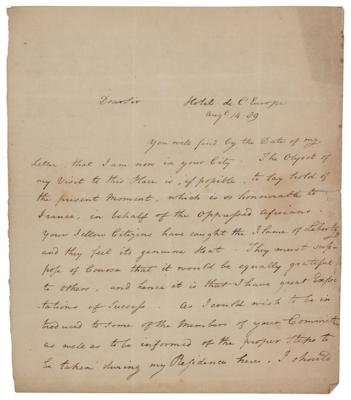 Dear Sir Hotel de L'Europe
Augt 14. 89
You will find by the Date of my
Letter, that I am now in your City. The Object of
my Visit to this Place is, if possible, to lay hold of
the present Moment, which is so honourable to
France, in behalf of the Oppressed Africans.
Your Fellow Citizens have caught the Flame of Liberty
and they feel its genuine Heat. They must sup-
pose of Course that it would be equally grateful
to others, and hence it is that I have great Expec-
tations of Success. As I would wish to be in
troduced to some of the Members of your Committee
as well as to be informed of the proper Steps to
be taken during my Residence here, I should